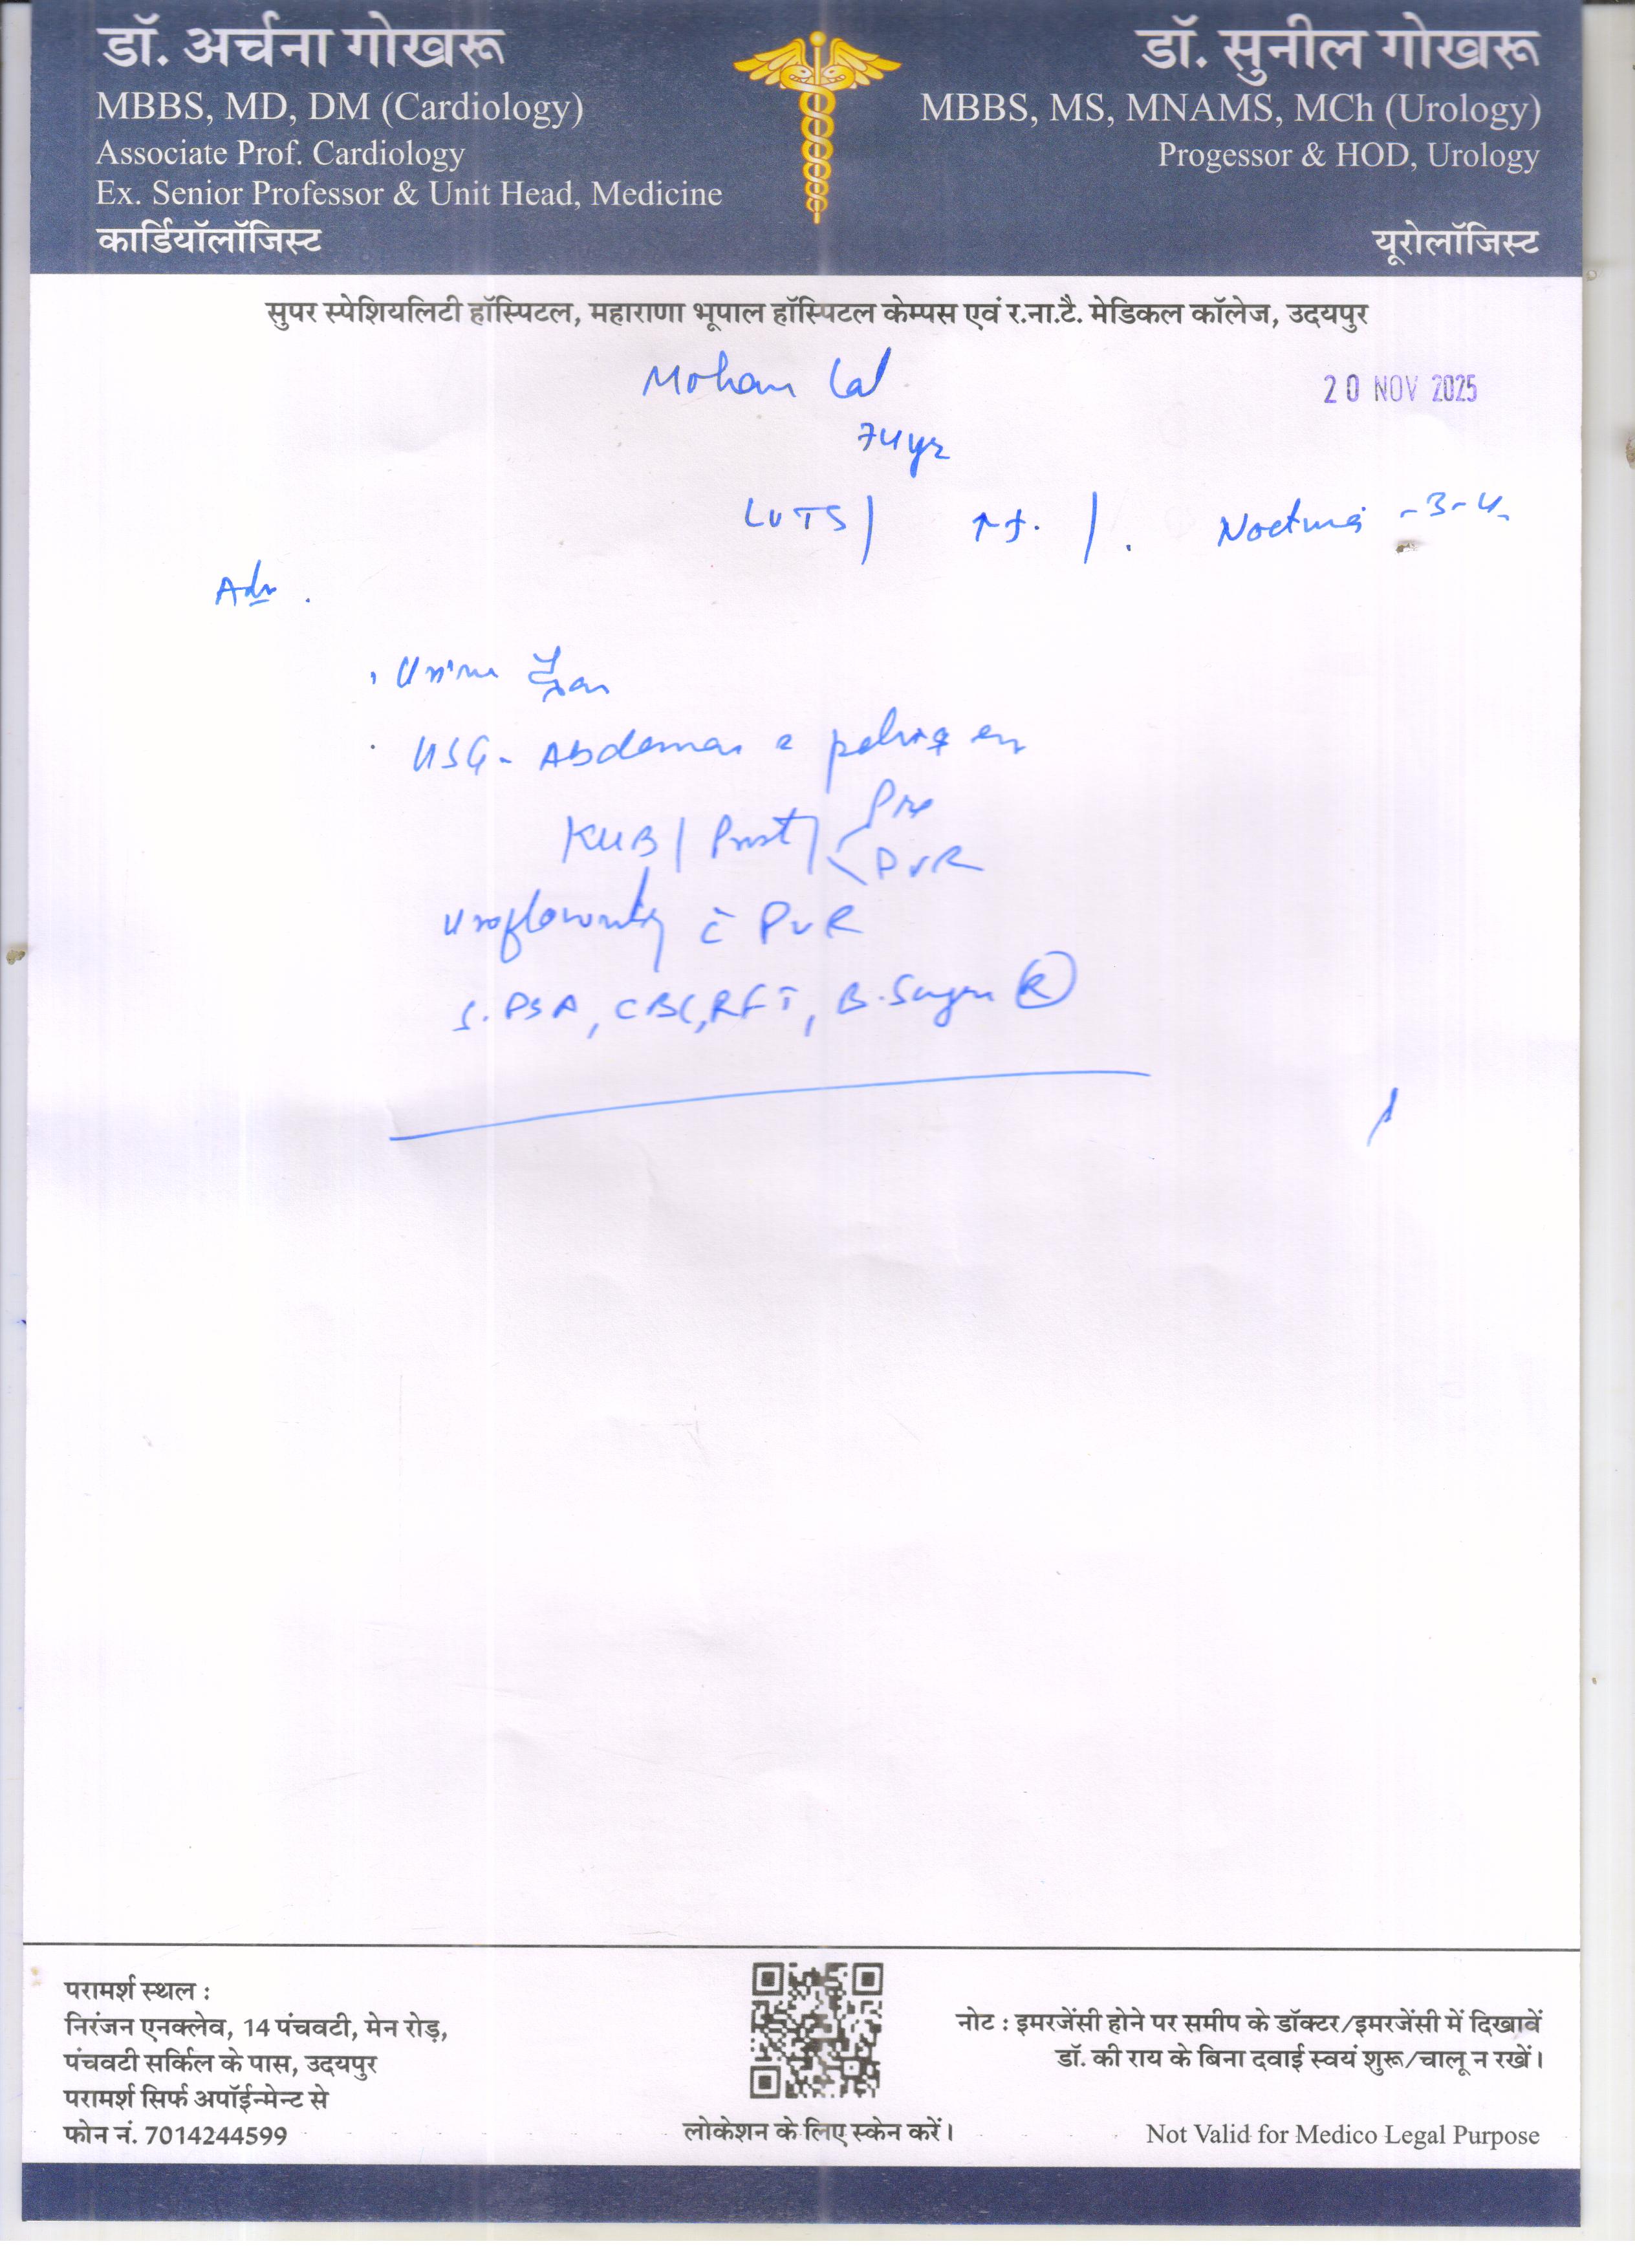 डॉ. अर्चना गोखरू
MBBS, MD, DM (Cardiology)
Associate Prof. Cardiology
Ex. Senior Professor & Unit Head, Medicine
कार्डियॉलॉजिस्ट
डॉ. सुनील गोखरू
MBBS, MS, MNAMS, MCh (Urology)
Progessor & HOD, Urology
यूरोलॉजिस्ट
सुपर स्पेशियलिटी हॉस्पिटल, महाराणा भूपाल हॉस्पिटल केम्पस एवं र.ना.टै. मेडिकल कॉलेज, उदयपुर
Mohan Lal
20 NOV 2025
74yr
LUTS / ↑f. / . Nocturia - 3-4
Adv.
Urine
USG - Abdomen pelvis
KUB / Prost / Pre
PVR
Uroflowmetry c̄ PVR
S. PSA, CBC, RFT, B. Sugar (R)
परामर्श स्थल :
निरंजन एनक्लेव, 14 पंचवटी, मेन रोड़,
पंचवटी सर्किल के पास, उदयपुर
परामर्श सिर्फ अपॉईन्मेन्ट से
फोन नं. 7014244599
लोकेशन के लिए स्केन करें।
नोट : इमरजेंसी होने पर समीप के डॉक्टर/इमरजेंसी में दिखावें
डॉ. की राय के बिना दवाई स्वयं शुरू/चालू न रखें।
Not Valid for Medico Legal Purpose